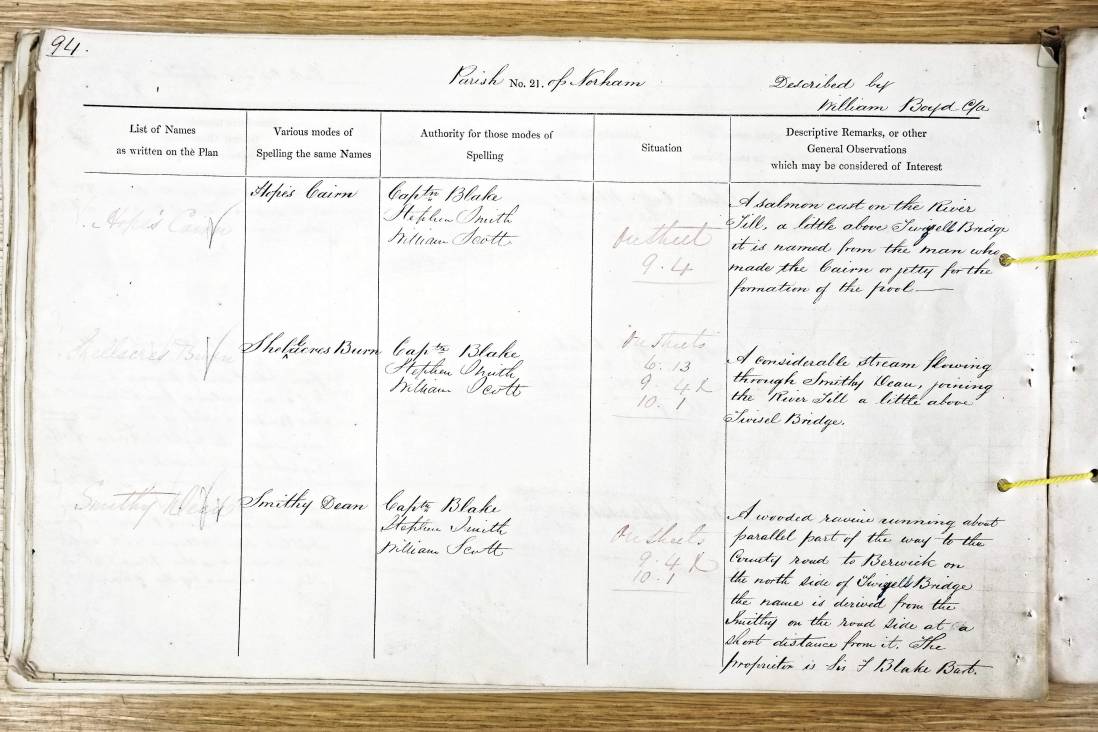 94.
Parish No. 21. of Norham
Described by
William Boyd C/a
List of Names
as written on the Plan
Various modes of
Spelling the same Names
Authority for those modes of
Spelling
Situation
Descriptive Remarks, or other
General Observations
which may be considered of Interest
Hope's Cairn
Hope's Cairn
Captn Blake
Stephen Smith
William Scott
On Sheet
9. 4
A salmon cast on the River
Till, a little above Twizell Bridge
it is named from the man who
made the Cairn or jetty for the
formation of the pool
Shellacres Burn
Shellacres Burn
Captn Blake
Stephen Smith
William Scott
On Sheets
6. 13
9. 4 &
10. 1
A considerable stream flowing
through Smithy Dean, joining
the River Till a little above
Twisel Bridge.
Smithy Dean
Smithy Dean
Captn Blake
Stephen Smith
William Scott
On Sheets
9. 4 &
10. 1
A wooded ravine running about
parallel part of the way to the
County road to Berwick on
the north side of Twizell Bridge
the name is derived from the
Smithy on the road side at a
short distance from it. The
proprietor is Sir F Blake Bart.